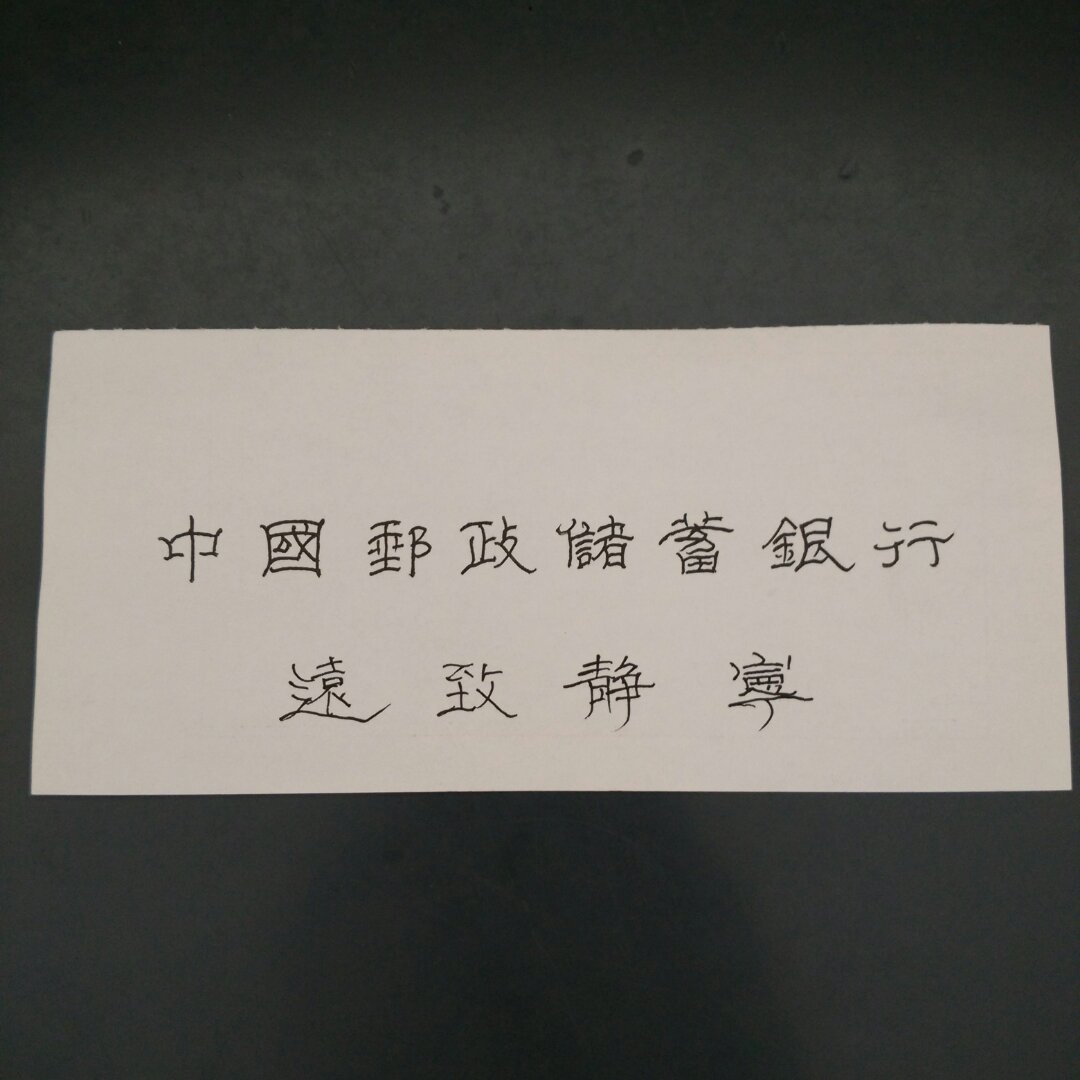 中國郵政儲蓄銀行
遠致靜寧